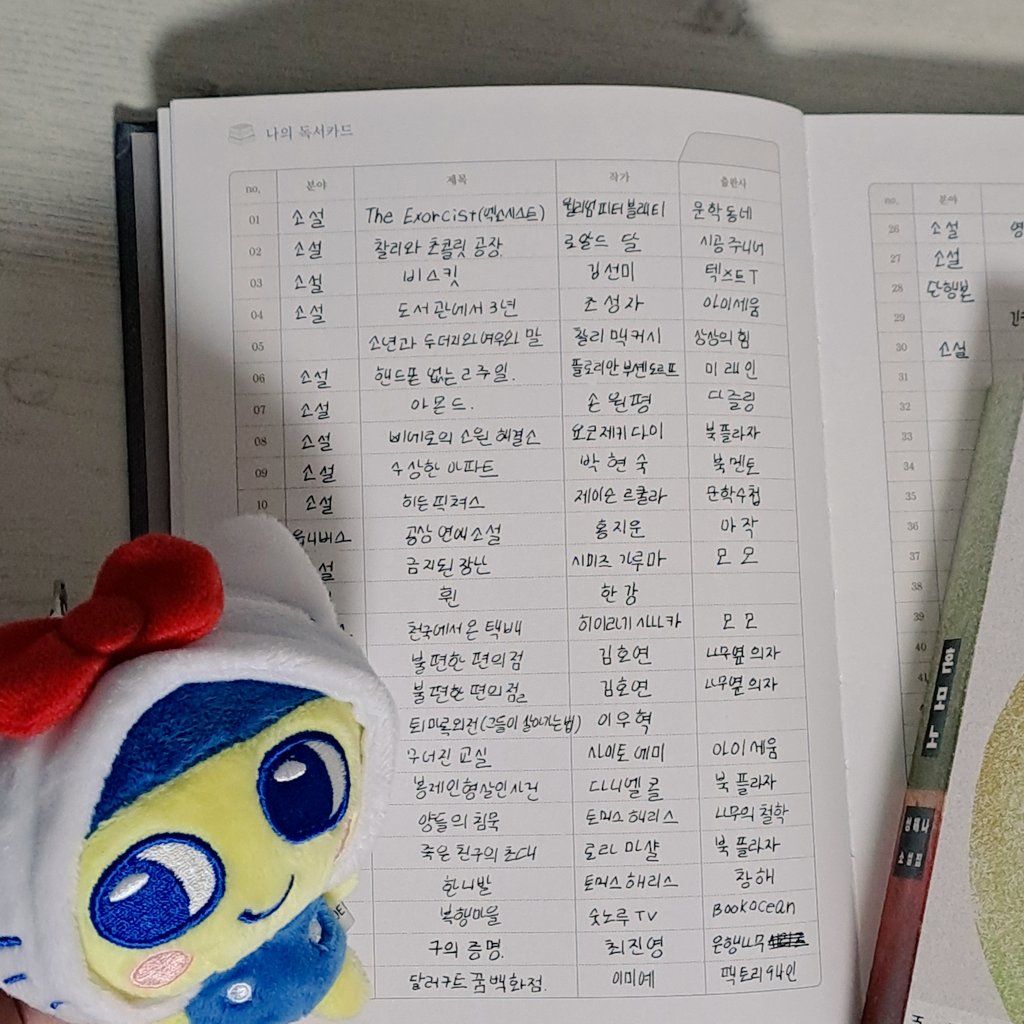 나의 독서카드
no. 분야 제목 작가 출판사
01 소설 The Exorcist(엑소시스트) 윌리엄 피터 블래티 문학동네
02 소설 찰리와 초콜릿 공장 로알드 달 시공주니어
03 소설 비스킷 김선미 텍스트T
04 소설 도서관에서 3년 조성자 아이세움
05 소년과 두더지와 여우와 말 찰리 맥커시 상상의힘
06 소설 핸드폰 없는 2주일. 플로리안 부셴도르프 미래인
07 소설 아몬드. 손원평 다즐링
08 소설 비네로의 소원 해결소 요코제키 다이 북플라자
09 소설 수상한 아파트 박현숙 북멘토
10 소설 히든 픽쳐스 제이슨 르쿨락 문학수첩
유니버스 공상연애소설 홍지운 아작
설 금지된 장난 시미즈 가루마 모모
흰 한강
천국에서 온 택배 히이라기 사나카 모모
불편한 편의점 김호연 나무옆의자
불편한 편의점 김호연 나무옆의자
토미로외전(그들이 살아가는법) 이우혁
구너진 교실 사이토 에미 아이세움
봉제인형살인사건 다니엘 콜 북플라자
양들의 침묵 토머스 해리스 나무의 철학
죽은 친구의 초대 로라 마샬 북플라자
한니발 토머스 해리스 창해
복행마을 숫노루TV Bookocean
구의 증명. 최진영 은행나무
달러구트 꿈 백화점. 이미예 팩토리나인
no. 분야
26 소설
27 소설
28 단행본
29
30 소설
31
32
33
34
35
36
37
38
39
40
41
혼모노
성해나
소설집